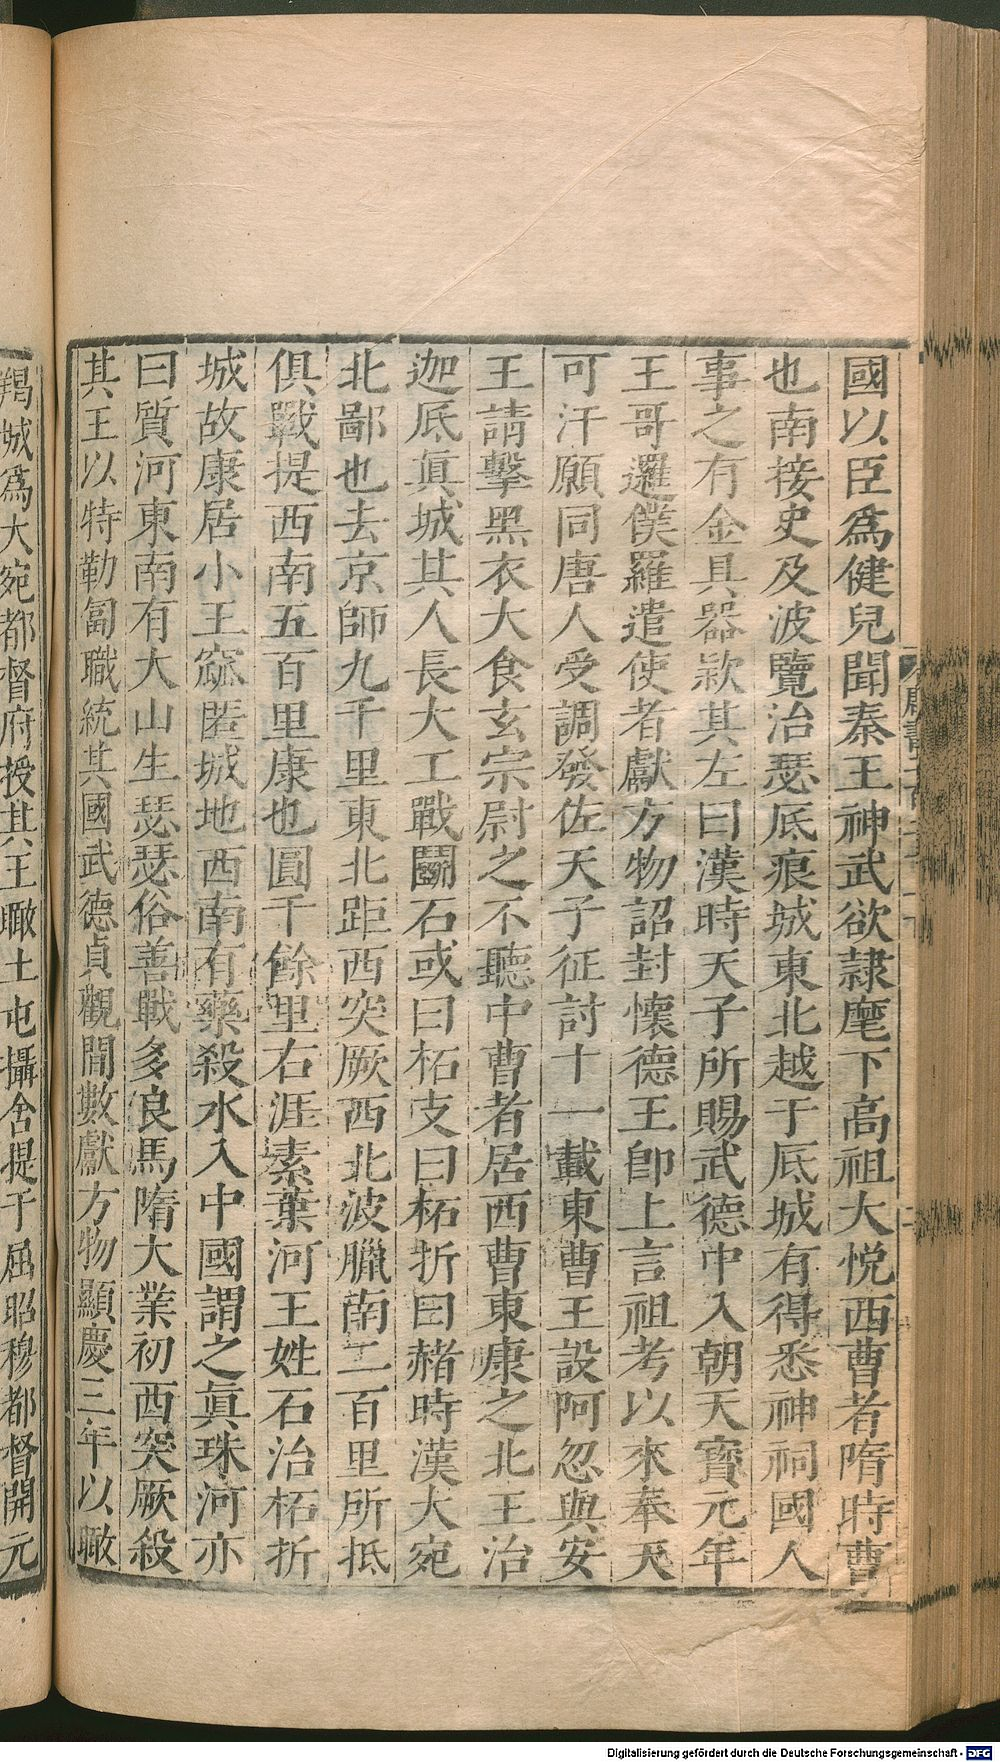 國以臣爲健兒聞秦王神武欲隷麾下高祖大悅西曹者隋時曹
也南接史及波覽治瑟底痕城東北越于底城有得悉神祠國人
事之有金具器款其左曰漢時天子所賜武德中入朝天寶元年
王哥邏僕羅遣使者獻方物詔封懷德王卽上言祖考以來奉天
可汗願同唐人受調發佐天子征討十一載東曹王設阿忽與安
王請擊黑衣大食玄宗尉之不聽中曹者居西曹東康之北王治
迦底眞城其人長大工戰鬭石或曰柘支曰柘折曰赭時漢大宛
北鄙也去京師九千里東北距西突厥西北波臘南二百里所抵
俱戰提西南五百里康也圓千餘里右涯素葉河王姓石治柘折
城故康居小王窳匿城地西南有藥殺水入中國謂之眞珠河亦
曰質河東南有大山生瑟瑟俗善戰多良馬隋大業初西突厥殺
其王以特勒匐職統其國武德貞觀間數獻方物顯慶三年以瞰
羯城爲大宛都督府授其王瞰土屯攝舍提于屈昭穆都督開元
Digitalisierung gefördert durch die Deutsche Forschungsgemeinschaft - DFG